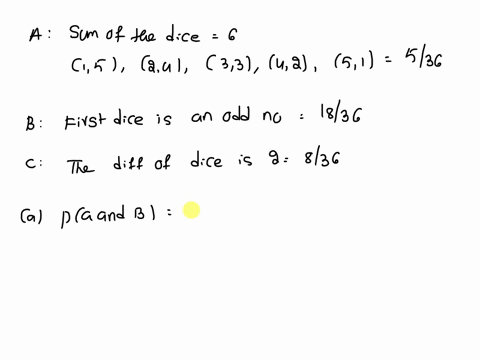 A: Sum of the dice = 6
(1,5), (2,4), (3,3), (4,2), (5,1) = 5/36
B: First dice is an odd no = 18/36
C: The diff of dice is 2 = 8/36
(a) P(A and B) =